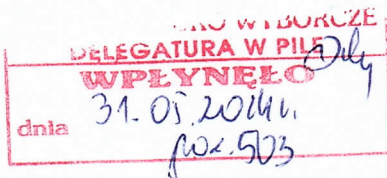 WYBORCZE
DELEGATURA W PILE
WPŁYNĘŁO
dnia 31.05.2014r.
poz. 503